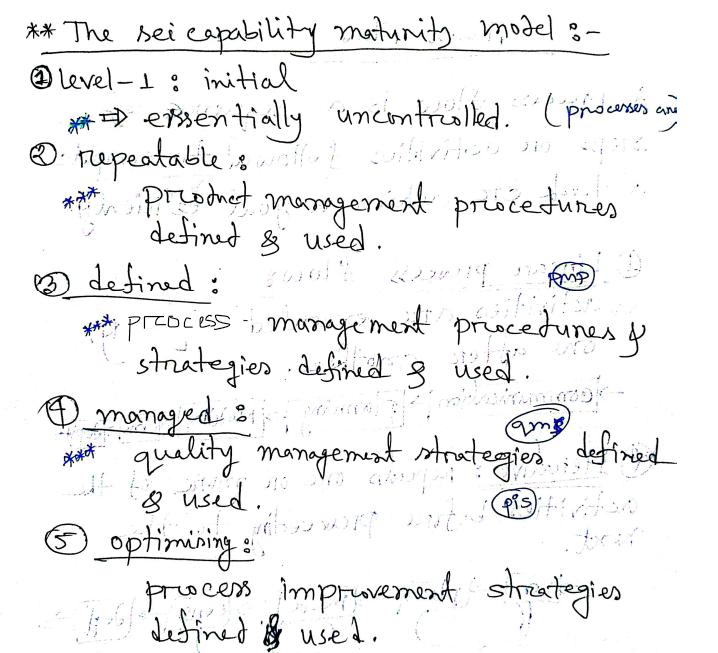 ** The sei capability maturity model :-
① level-1 : initial
** ⇒ essentially uncontrolled. (processes are
② repeatable :
*** product management procedures
defined & used.
③ defined : pmp
*** process management procedures &
strategies defined & used.
④ managed : qms
*** quality management strategies defined
& used. pis
⑤ optimising :
process improvement strategies
defined & used.